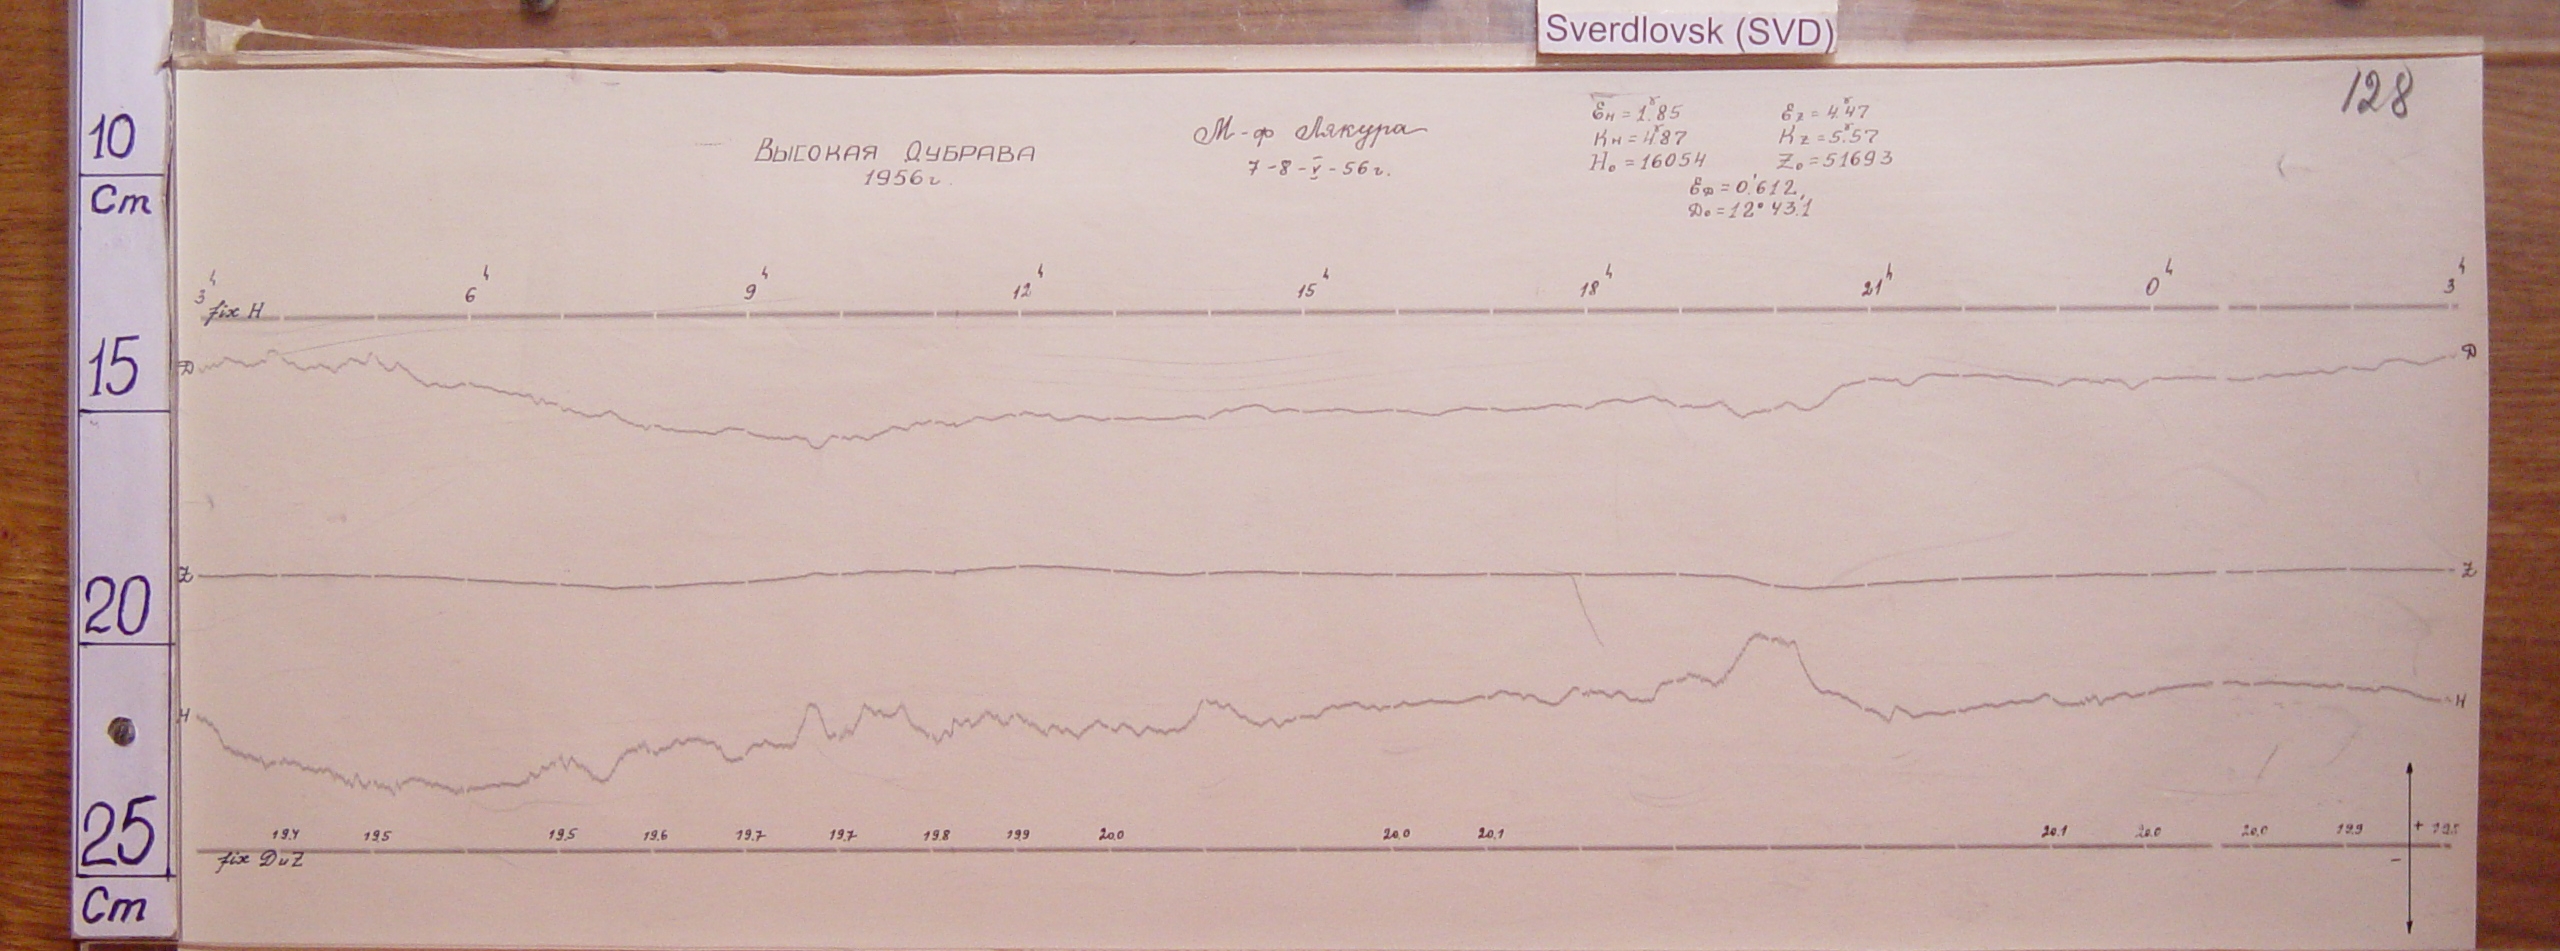 Sverdlovsk (SVD)
128
10
Cm
15
20
25
Cm
Высокая Дубрава
1956г.
М-ф Лякура
7-8-V-56г.
εн = 1.ˠ85
Kн = 4.ˠ87
H₀ = 16054
εz = 4.ˠ47
Kz = 5.ˠ57
Z₀ = 51693
εD = 0.'612
D₀ = 12° 43.'1
3ʰ 6ʰ 9ʰ 12ʰ 15ʰ 18ʰ 21ʰ 0ʰ 3ʰ
fix H
D D
Z Z
H H
19.4 19.5 19.5 19.6 19.7 19.7 19.8 19.9 20.0 20.0 20.1 20.1 20.0 20.0 19.9 + 19.5
fix D и Z
−